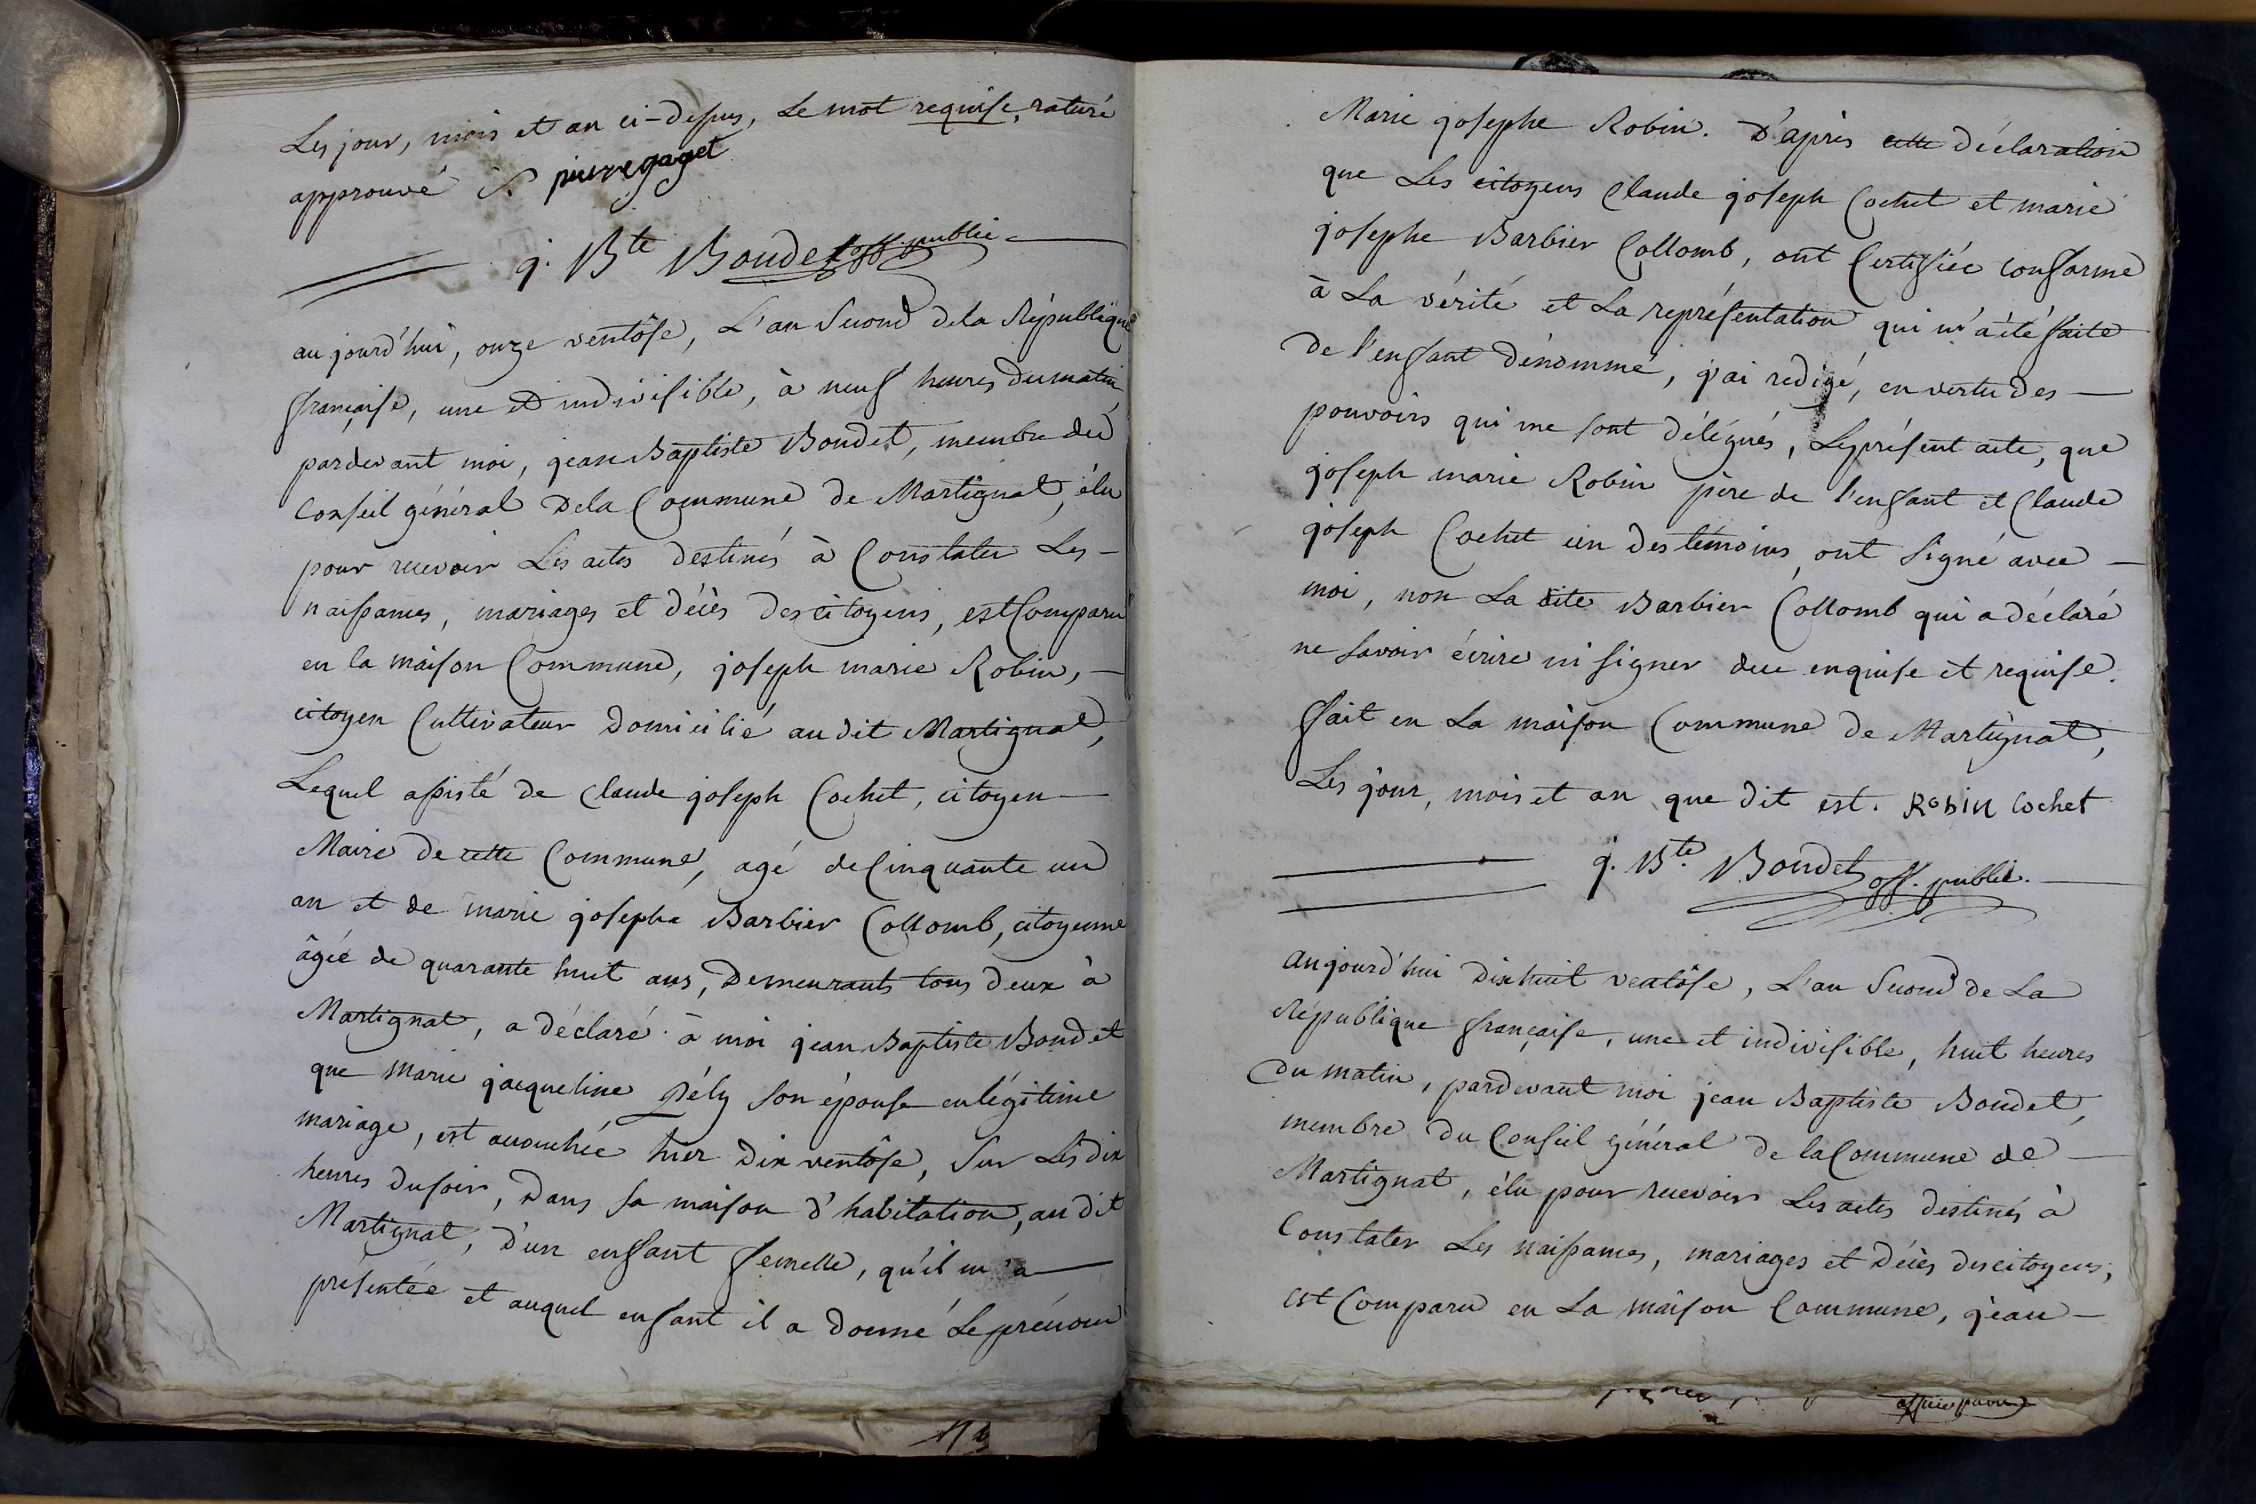 Les jour, mois et an ci-dessus, Le mot requise, raturé
approuvé pierre gaget
j. Bte Boudet off. public
aujourd'hui, onze ventôse, L'an Second dela République
française, une et indivisible, à neuf heures du matin,
pardevant moi, jean Baptiste Boudet, membre du
Conseil général Dela Commune de Martignat, élu
pour recevoir Les actes destinés à Constater Les
naissances, mariages et décès des citoyens, est Comparu
en la maison Commune, joseph marie Robin,
citoyen Cultivateur Domicilié audit Martignat,
Lequel assisté de Claude joseph Cochet, citoyen
Maire de cette Commune, agé de Cinquante un
an et de marie josephe Barbier Collomb, citoyenne
âgée de quarante huit ans, Demeurants tous deux à
Martignat, a déclaré à moi jean Baptiste Boudet
que Marie jacqueline Pély son épouse en légitime
mariage, est accouchée hier dix ventôse, Sur Les dix
heures du soir, Dans sa maison d'habitation, au dit
Martignat, d'un enfant femelle, qu'il m'a
présentée et auquel enfant il a donné Le prénom
Marie josephe Robin. D'après cette déclaration
que Les citoyens Claude joseph Cochet et marie
josephe Barbier Collomb, ont Certifiée conforme
à La vérité et La représentation qui m'a été faite
De l'enfant dénommé, j'ai redigé, en vertu des
pouvoirs qui me sont délégués, Le présent acte, que
joseph marie Robin père de l'enfant et Claude
joseph Cochet un des témoins, ont signé avec
moi, non La dite Barbier Collomb qui a déclaré
ne savoir écrire ni signer de ce enquise et requise.
fait en La maison Commune de Martignat,
Les jour, mois et an que dit est. Robin Cochet
j. Bte. Boudet off. public.
aujourd'hui Dixhuit ventôse, L'an Second de La
République française, une et indivisible, huit heures
Du matin, pardevant moi jean Baptiste Boudet,
membre du Conseil général de la Commune de
Martignat, élu pour recevoir Les actes destinés à
Constater Les naissances, mariages et Décès des citoyens,
est Comparu en La maison Commune, jean